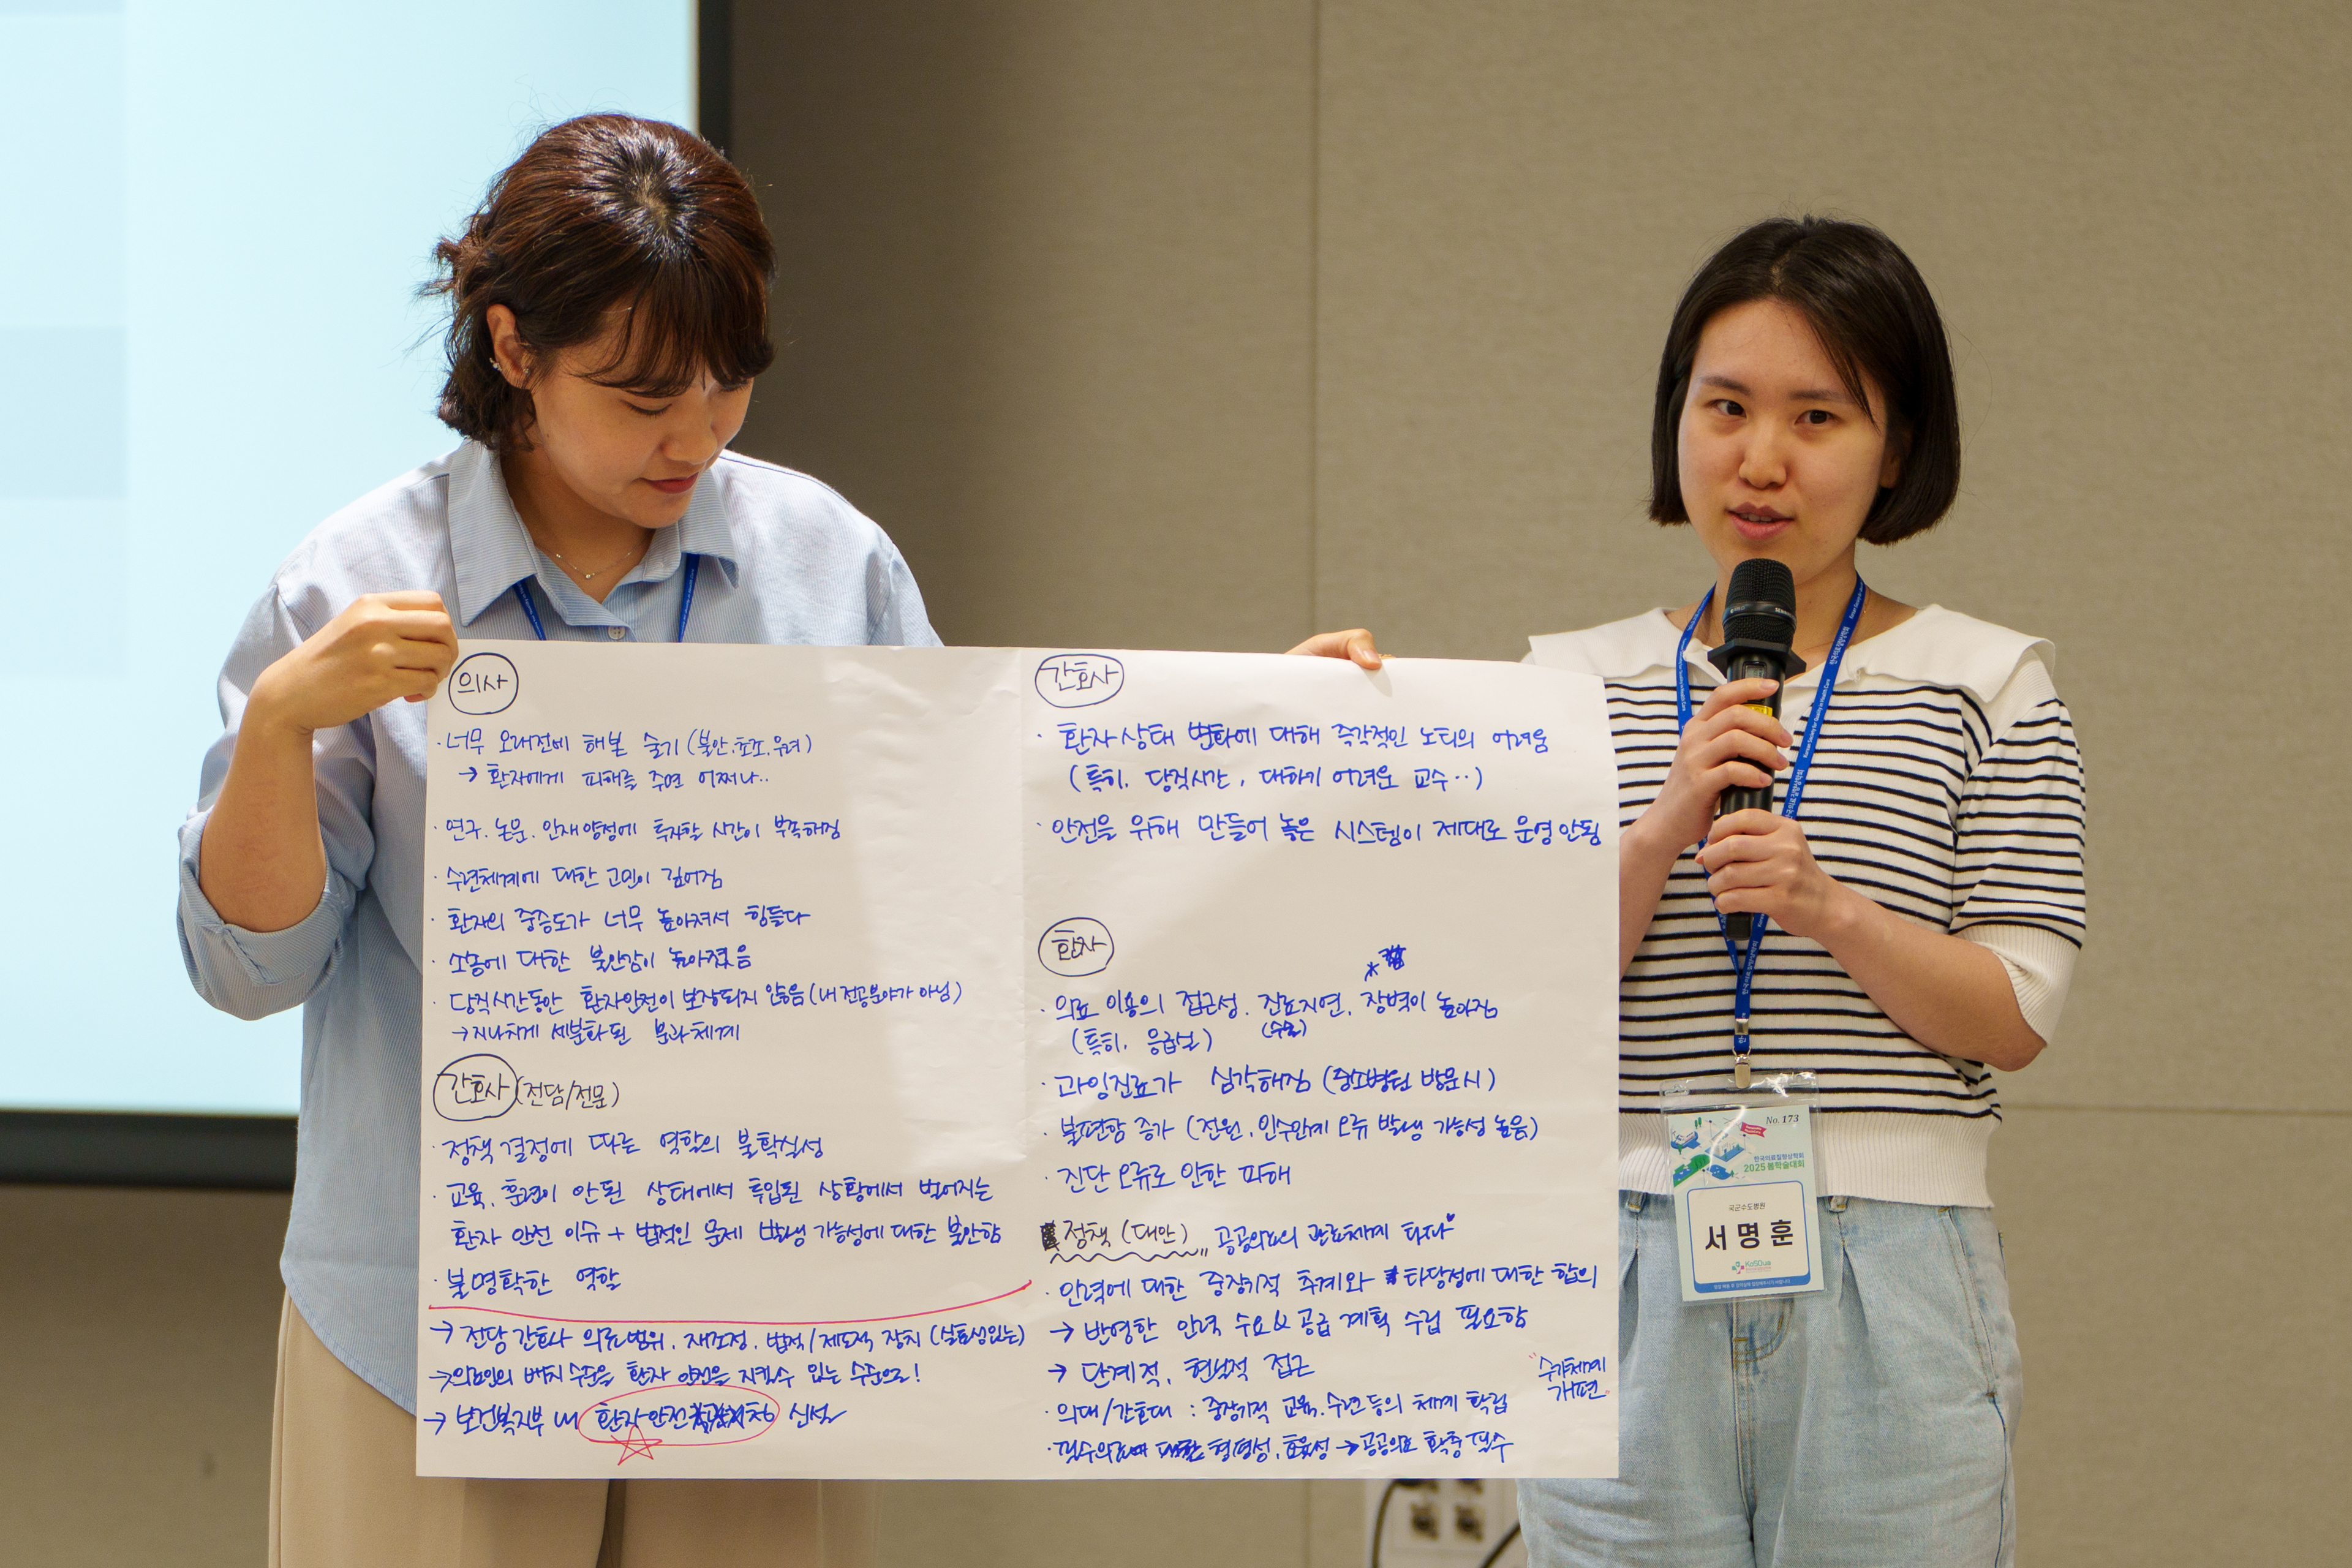 의사
· 너무 오래전에 해본 술기 (불안.초조.우려)
→ 환자에게 피해를 주면 어쩌나..
· 연구. 논문. 인재양성에 투자할 시간이 부족해짐
· 수련체계에 대한 고민이 깊어짐
· 환자의 중증도가 너무 높아져서 힘들다
· 소송에 대한 불안감이 높아졌음
· 당직시간동안 환자안전이 보장되지 않음 (내 전공분야가 아님)
→ 지나치게 세분화된 분과체계
간호사 (전담/전문)
· 정책 결정에 따른 역할의 불확실성
· 교육, 훈련이 안된 상태에서 투입된 상황에서 벌어지는
환자 안전 이슈 + 법적인 문제 발생 가능성에 대한 불안함
· 불명확한 역할
→ 전담 간호사 의료범위. 재조정. 법적/제도적 장치 (실효성있는)
→ 의료인의 배치 수준을 환자 안전을 지킬수 있는 수준으로!
→ 보건복지부 내 환자안전 신설
간호사
· 환자상태 변화에 대해 즉각적인 노티의 어려움
(특히. 당직시간, 대하기 어려운 교수..)
· 안전을 위해 만들어 놓은 시스템이 제대로 운영안됨
환자
· 의료 이용의 접근성. 진료지연. 장벽이 높아짐
(특히. 응급실) (수술)
· 과잉진료가 심각해짐 (중소병원 방문시)
· 불편함 증가 (전원. 인수인계 오류 발생 가능성 높음)
· 진단 오류로 인한 피해
정책 (대안) 공공의료의 관료체계 타파
· 인력에 대한 중장기적 추계와 타당성에 대한 합의
→ 반영한 인력 수요&공급 계획 수립 필요함
→ 단계적, 현실적 접근
"수가체계
개편"
· 의대/간호대 : 중장기적 교육.수련등의 체계 확립
· 필수의료에 대한 형평성.효율성 → 공공의료 확충 필수
No. 173
한국의료질향상학회
2025 봄학술대회
국군수도병원
서명훈
KoSQua